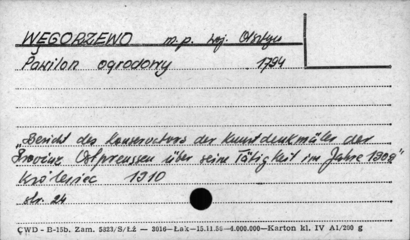 WĘGORZEWO m.p. woj. Olsztyn
Pawilon ogrodowy 1794
"Bericht des Konservators der Kunstdenkmäler der
Provinz Ostpreussen über seine Tätigkeit im Jahre 1909"
Królewiec 1910
str. 24
CWD - B-15b. Zam. 5823/S/ŁŻ — 3010—Łak—15.11.56—1.000.000—Karton kl. IV A1/200 g